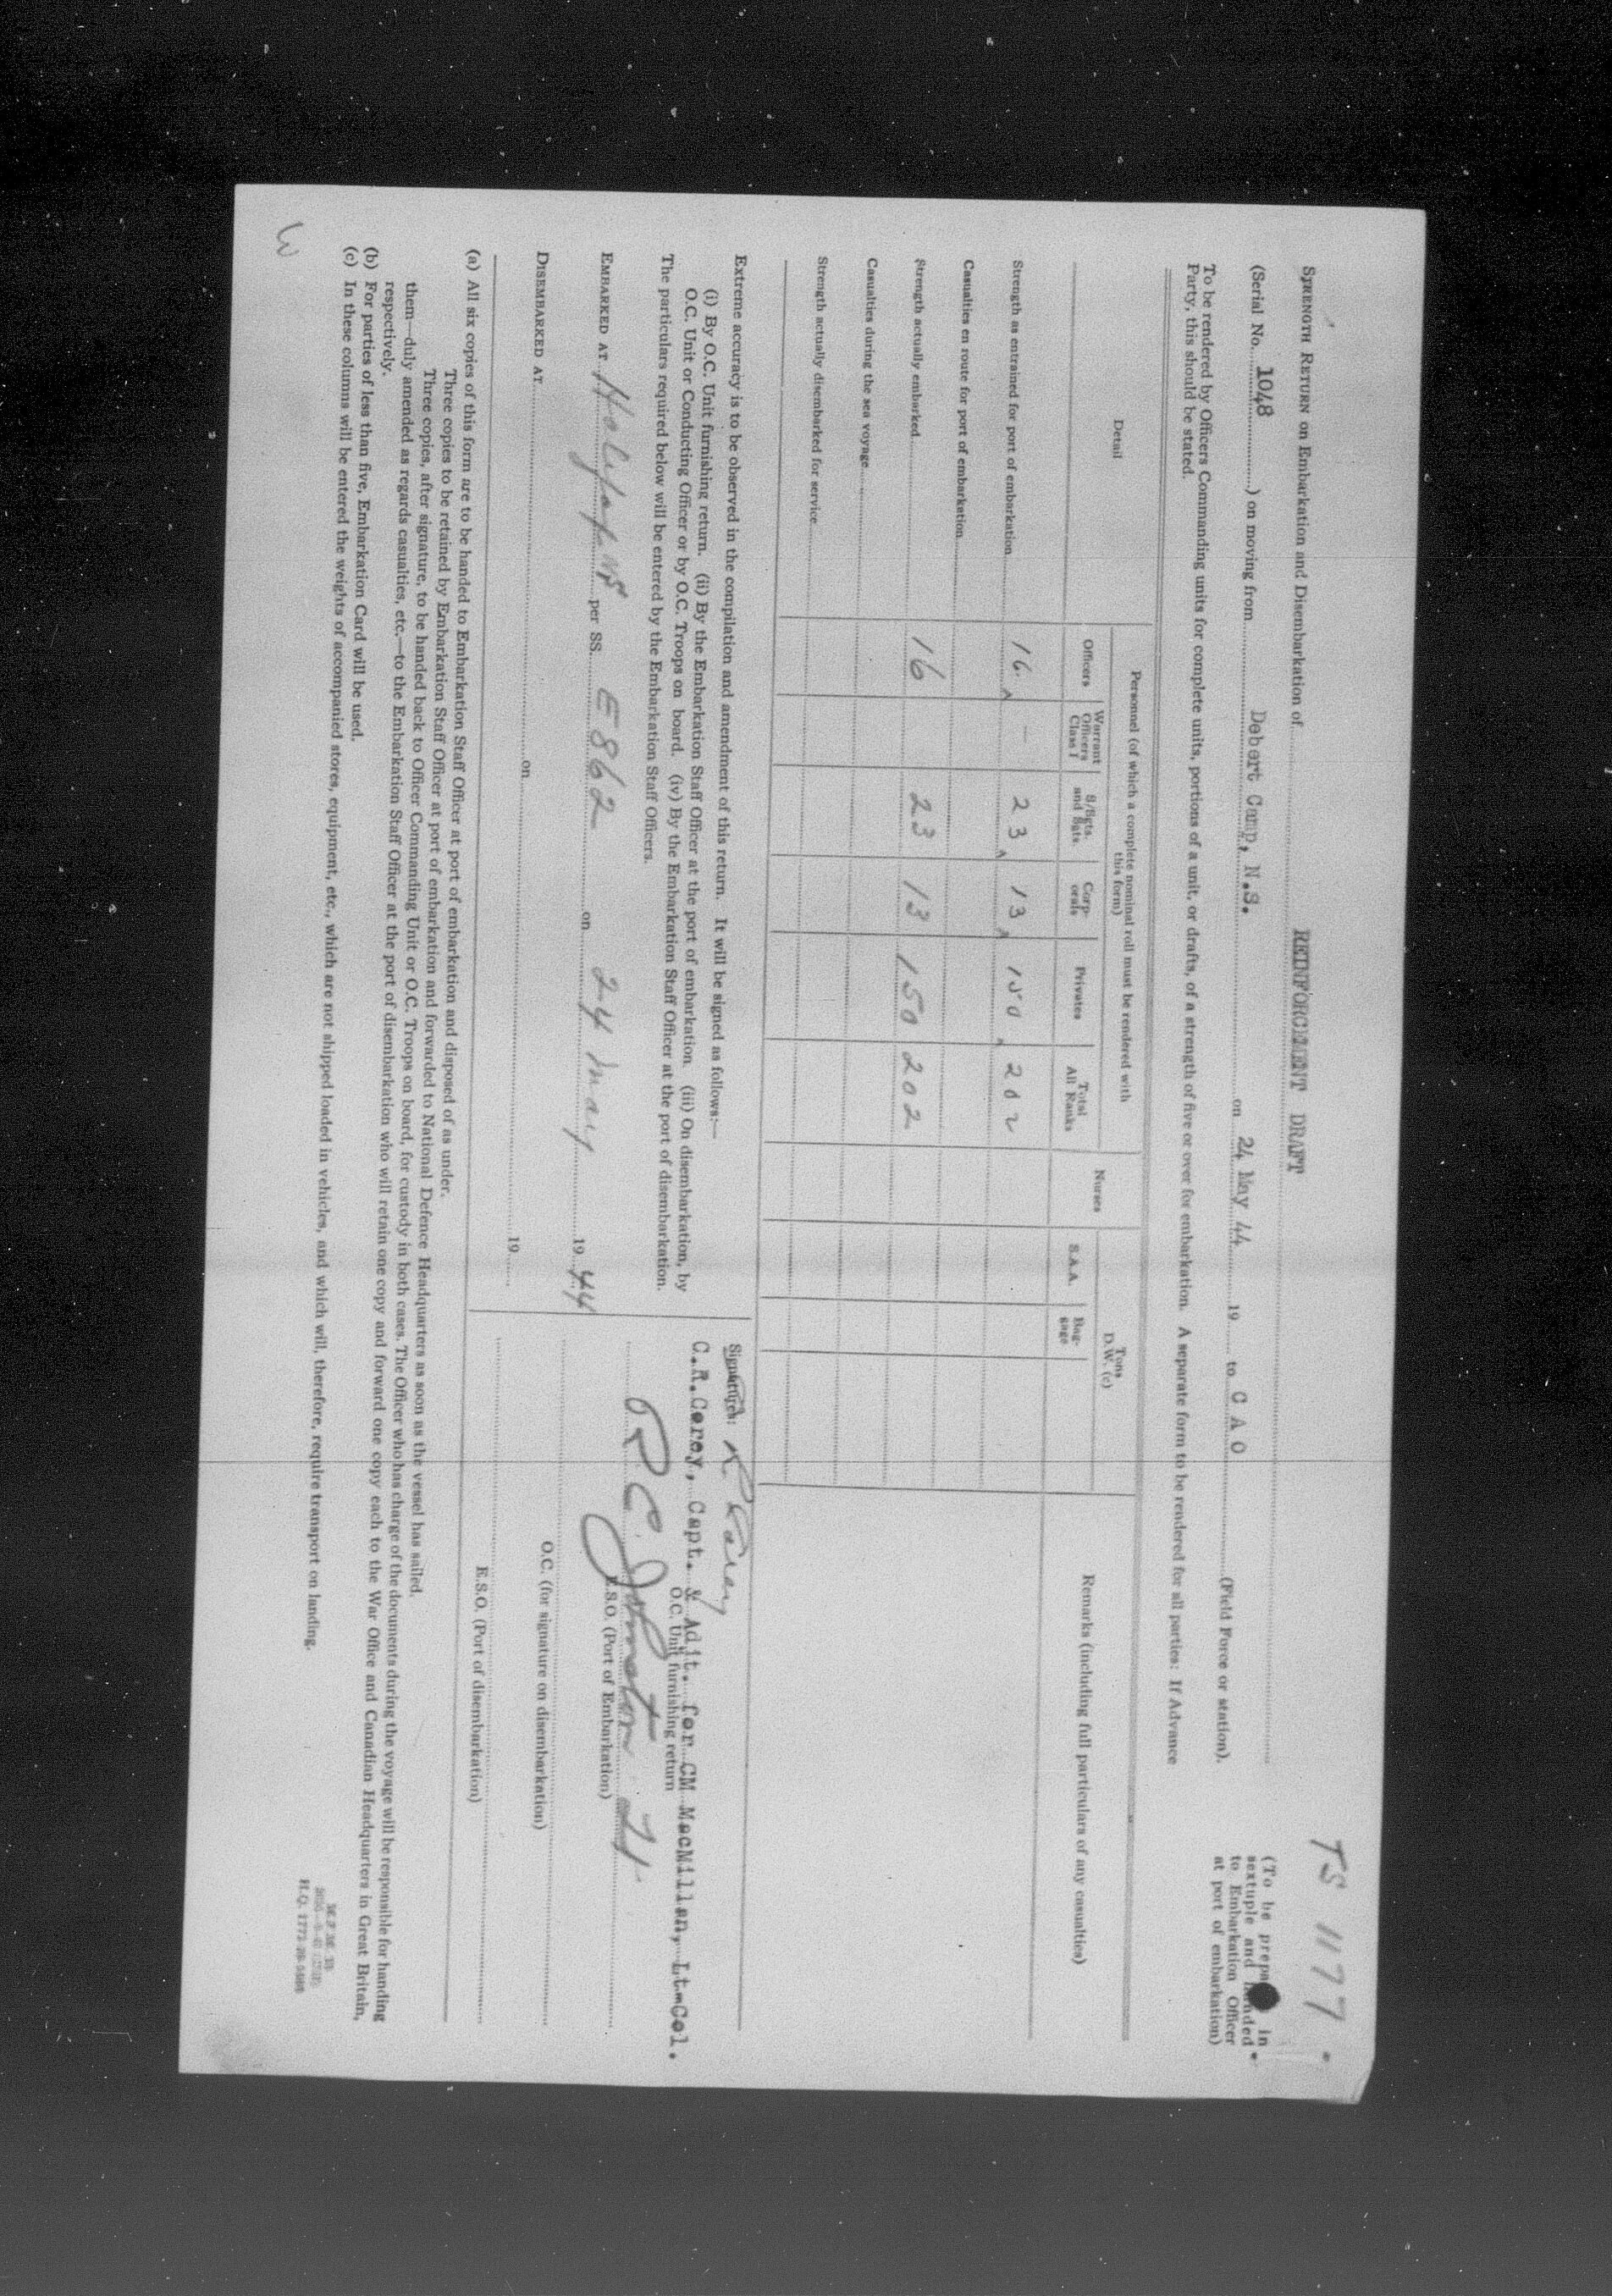 TS 1177
STRENGTH RETURN on Embarkation and Disembarkation of REINFORCEMENT DRAFT
(To be prepa in
sextuple and handed
to Embarkation Officer
at port of embarkation)
(Serial No. 1048) on moving from Debert Camp, N.S. on 24 May 44 19 to C A O (Field Force or station).
To be rendered by Officers Commanding units for complete units, portions of a unit, or drafts, of a strength of five or over for embarkation. A separate form to be rendered for all parties: If Advance
Party, this should be stated.
Detail
Personnel (of which a complete nominal roll must be rendered with
this form)
Nurses
Tons
D.W. (c)
Remarks (including full particulars of any casualties)
Officers
Warrant
Officers
Class I
S/Sgts.
and Sgts.
Corp-
orals
Privates
Total
All Ranks
S.A.A.
Bag-
gage
Strength as entrained for port of embarkation 16 — 23 13 150 202
Casualties en route for port of embarkation
Strength actually embarked 16 23 13 150 202
Casualties during the sea voyage
Strength actually disembarked for service
Extreme accuracy is to be observed in the compilation and amendment of this return. It will be signed as follows:—
(i) By O.C. Unit furnishing return. (ii) By the Embarkation Staff Officer at the port of embarkation. (iii) On disembarkation, by
O.C. Unit or Conducting Officer or by O.C. Troops on board. (iv) By the Embarkation Staff Officer at the port of disembarkation.
The particulars required below will be entered by the Embarkation Staff Officers.
EMBARKED AT Halifax NS per SS. E862 on 24 May 19 44
DISEMBARKED AT on 19
Signatures:
C.R.Corey, Capt. & Adjt. for CM MacMillan, Lt-Col.
O.C. Unit furnishing return
R C Johnston Lt.
E.S.O. (Port of Embarkation)
O.C. (for signature on disembarkation)
E.S.O. (Port of disembarkation)
(a) All six copies of this form are to be handed to Embarkation Staff Officer at port of embarkation and disposed of as under.
Three copies to be retained by Embarkation Staff Officer at port of embarkation and forwarded to National Defence Headquarters as soon as the vessel has sailed.
Three copies, after signature, to be handed back to Officer Commanding Unit or O.C. Troops on board, for custody in both cases. The Officer who has charge of the documents during the voyage will be responsible for handing
them—duly amended as regards casualties, etc.—to the Embarkation Staff Officer at the port of disembarkation who will retain one copy and forward one copy each to the War Office and Canadian Headquarters in Great Britain,
respectively.
(b) For parties of less than five, Embarkation Card will be used.
(c) In these columns will be entered the weights of accompanied stores, equipment, etc., which are not shipped loaded in vehicles, and which will, therefore, require transport on landing.